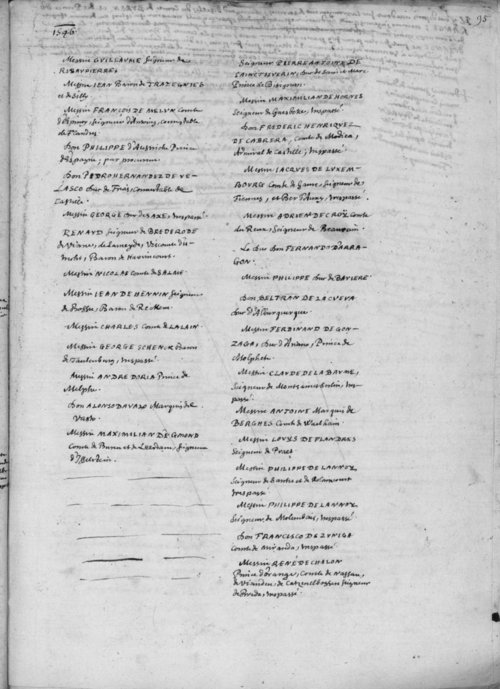 95
1546
Messire GUILLAUME Seigneur de
RIBAUPIERRE
Messire JEAN Baron de TRAZEGNIES
et de Silly
Messire FRANCOIS DE MELUN Comte
d'Espinoy, Seigneur d'Antoing, connestable
de Flandres
Don PHILIPPE d'Austriche Prince
d'Espagne; par procureur
Don PEDRO HERNANDEZ DE VE-
LASCO Duc de Frias, Connestable de
Castille
Messire GEORGE Duc de SAXE, trespassé
RENAUD Seigneur de BREDERODE
de Viane, de Vicomte d'U-
trecht, Baron de
Messire NICOLAS Comte de SALME
Messire JEAN DE HENNIN Seigneur
de Bossu, Baron de
Messire CHARLES Comte de LALAIN
Messire GEORGE SCHENCK Baron
de Tautenburg, trespassé
Messire ANDRE DORIA Prince de
Melphe
Don ALONSO DAVALO Marquis del
Vasto
Messire MAXIMILIAN D'EGMOND
Comte de Buren et de Leerdam, Seigneur
d'Isselstein
Seigneur PIERRE ANTOINE DE
SAINCT SEVERIN, Duc de
Prince de Bisignan
Messire MAXIMILIAN DE HORNES
Seigneur de Gaesbeke, trespassé
Don FREDERIC HENRIQUEZ
DE CABRERA, Comte de Modica,
Admiral de Castille; trespassé
Messire JACQUES DE LUXEM-
BOURG Comte de Gavre, Seigneur de
Fiennes, et trespassé
Messire ADRIEN DE CROY Comte
du Reux, Seigneur de Beaurain
Le Duc Don FERNANDO D'ARRA-
GON
Messire PHILIPPE Duc de BAVIERE
Don BELTRAN DE LA CUEVA
Duc d'Albuquerque
Messire FERDINAND DE GON-
ZAGA, Duc d'Ariano, Prince de
Molphete
Messire CLAUDE DE LA BAUME,
Seigneur de Mont Saint Sorlin, tres-
passé
Messire ANTOINE Marquis de
BERGHES Comte de Walhain
Messire LOUYS DE FLANDRES
Seigneur de Praet
Messire PHILIPPE DE LANNOY
Seigneur de Santes et de Rolancourt
trespassé
Messire PHILIPPE DE LANNOY
Seigneur de Molembais, trespassé
Don FRANCESCO DE ZUNIGA
Comte de Miranda, trespassé
Messire RENÉ DE CHALON
Prince d'Orange, Comte de Nassau,
de Vianden, de Catzenellbogen Seigneur
de Breda, trespassé